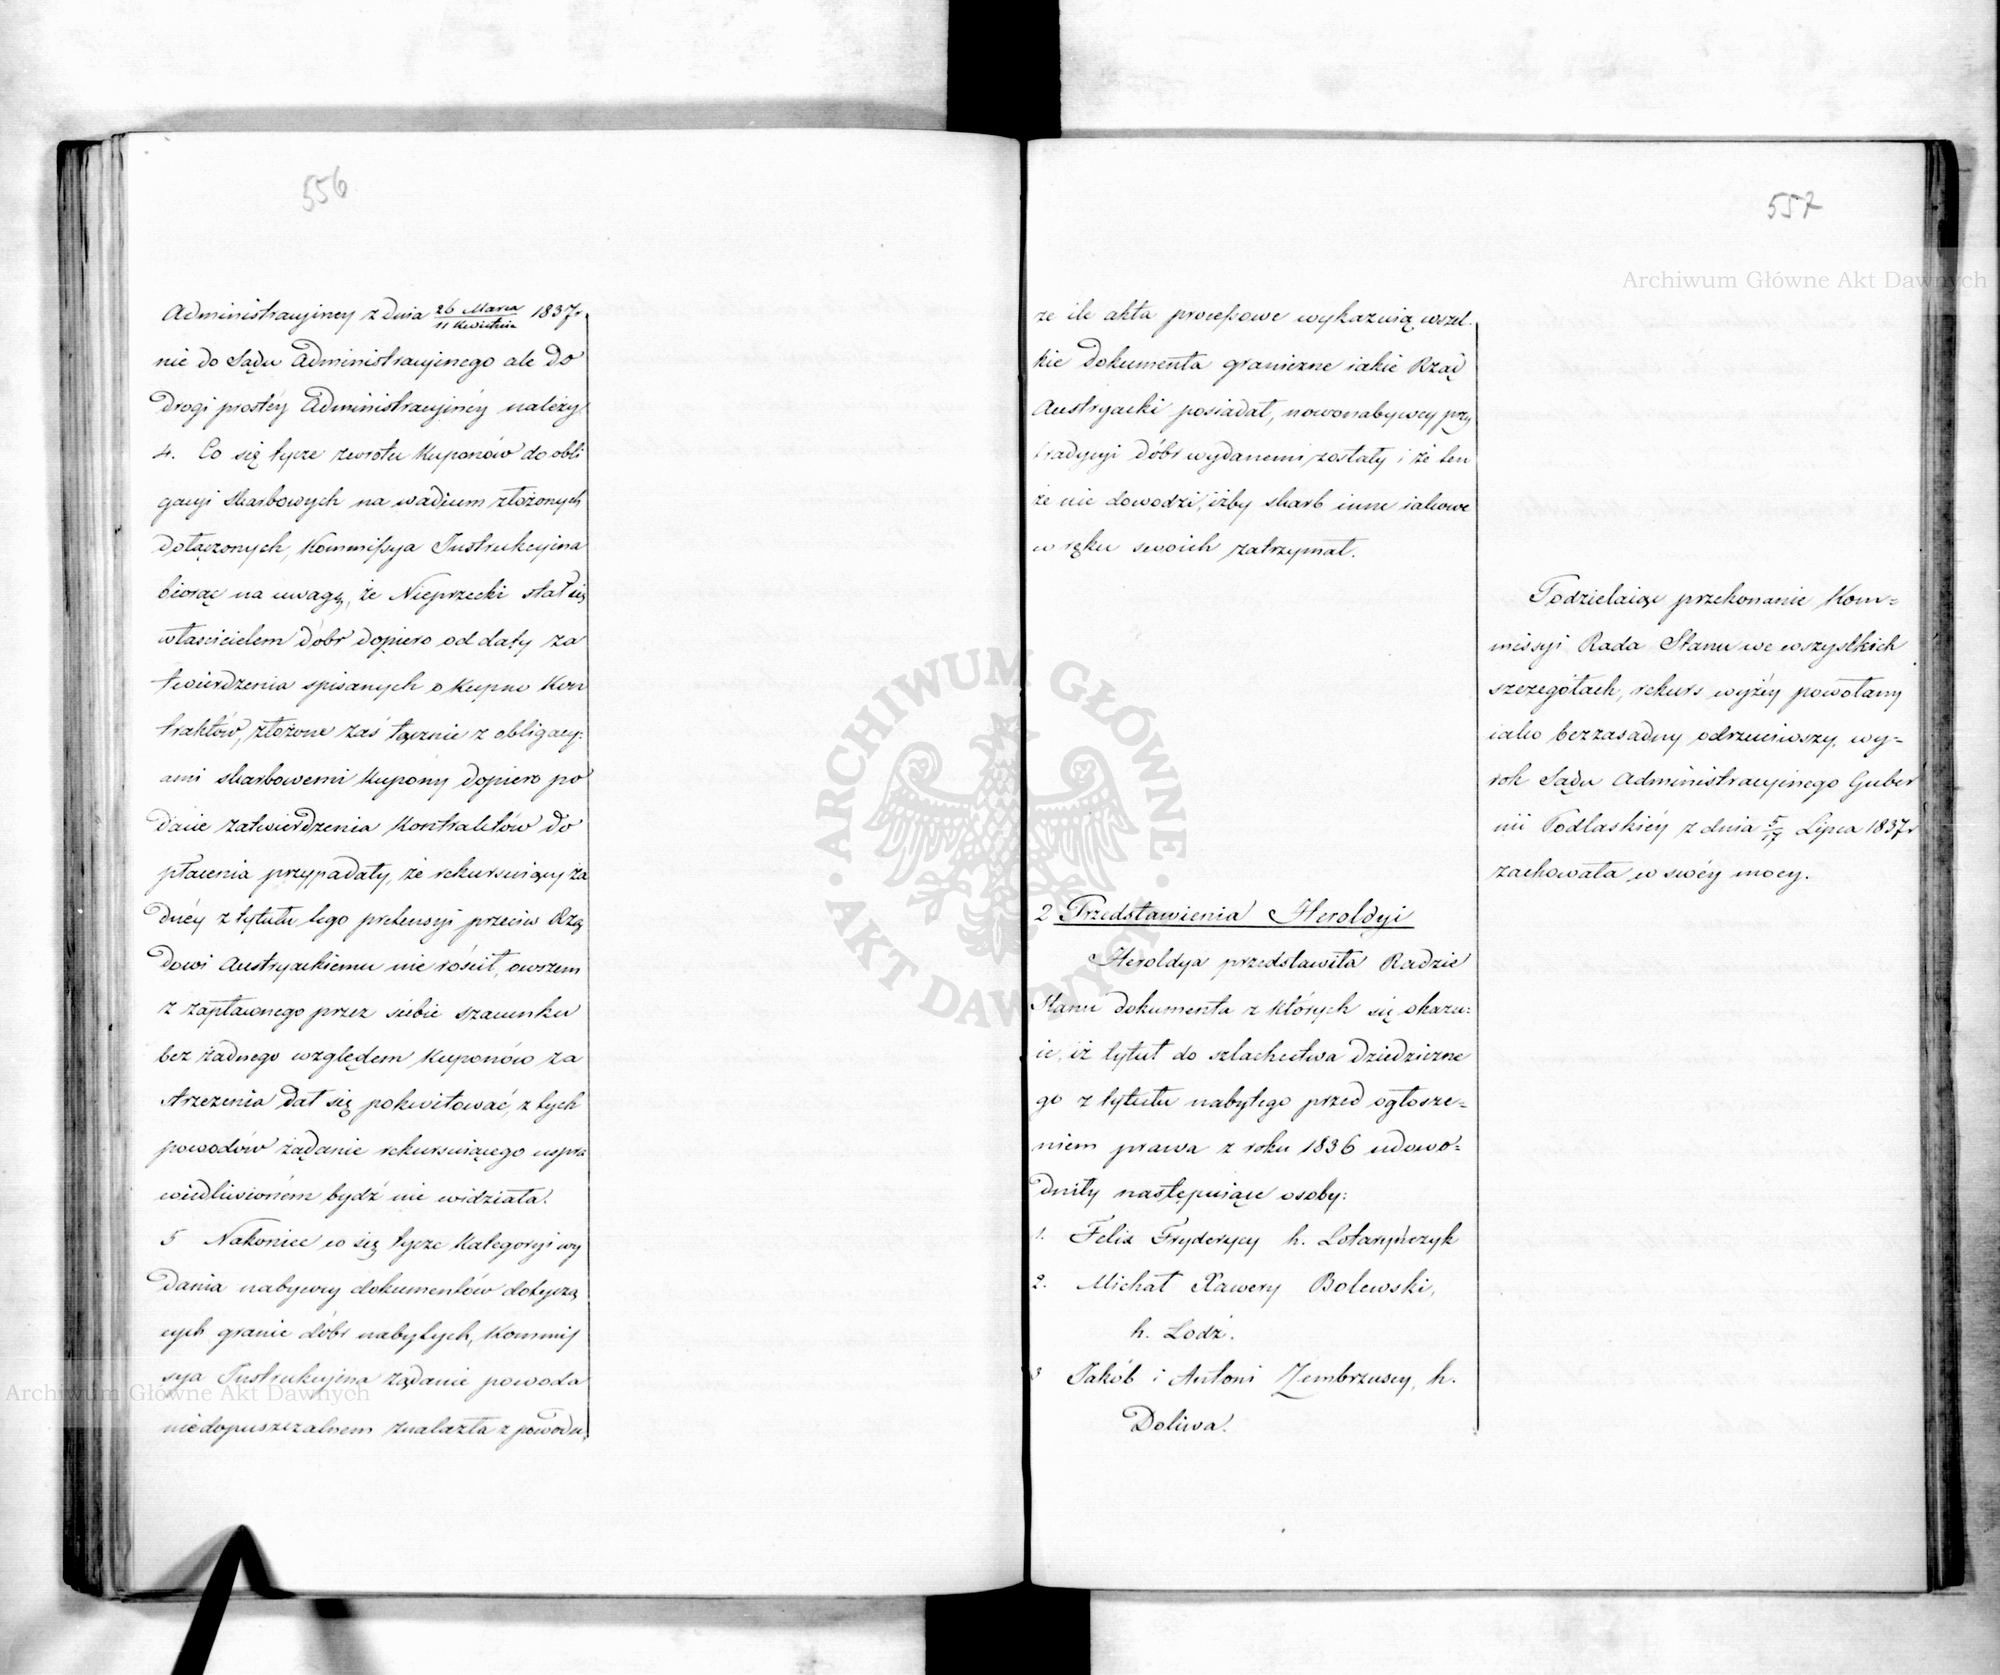 556
Administracyjney z dnia 26 Marca / 11 Kwietnia 1837 r.
nie do Sądu Administracyjnego ale do
drogi prostéy Administracyjnéy należy.
4. Co się tycze zwrotu Kuponów do obli
gacyi Skarbowych na wadium złożonych
dołączonych, Kommissya Instrukcyina
biorąc na uwagę, że Nieprzecki stał się
właścicielem dóbr dopiero od daty za
twierdzenia spisanych o kupno Kon
traktów, złożone zaś łącznie z obligacy:
ami skarbowemi Kupony dopiero po
dacie zatwierdzenia Kontraktów do
płacenia przypadały, że rekursuiący ża
dnéy z tytułu tego pretensyi przeciw Rzą
dowi Austryackiemu nie rościł, owszem
z zapłaconego przez siebie szacunku
bez żadnego względem Kuponów za
strzeżenia dał się pokwitować, z tych
powodów żądanie rekursuiącego uspra
wiedliwioném bydź nie widziała.
5 Nakoniec co się tycze Kategoryi wy
dania nabywcy dokumentów dotyczą
cych granic dóbr nabytych, Kommis
sya Instrukcyina żądanie powoda
niedopuszczalnem znalazła z powodu,
557
że ile akta processowe wykazuią wszel.
kie dokumenta graniczne iakie Rząd
Austryacki posiadał, nowonabywcy przy
tradycyi dóbr wydanemi zostały i że ten
że nie dowodzi, iżby skarb inne iakowe
w ręku swoich zatrzymał.
Podzielaiąc przekonanie Kom=
missyi Rada Stanu we wszystkich
szczegółach, rekurs wyżéy powołany
iako bezzasadny odrzuciwszy, wy=
rok Sądu Administracyjnego Guber
nii Podlaskiéy z dnia 5/17 Lipca 1837 r
zachowała w swéy mocy.
2 Przedstawienia Heroldyi
Heroldya przedstawiła Radzie
Stanu dokumenta z których się okazu:
ie, iż tytuł do szlachectwa dziedziczne
go z tytułu nabytego przed ogłosze=
niem prawa z roku 1836 udowo=
dniły następuiące osoby:
1. Felix Fryderycy h. Lotaryńczyk
2. Michał Xawery Bolewski,
h. Lodź.
3 Jakób i Antoni Zembrzuscy, h.
Doliwa.
Archiwum Główne Akt Dawnych
Archiwum Główne Akt Dawnych
ARCHIWUM GŁÓWNE · AKT DAWNYCH ·